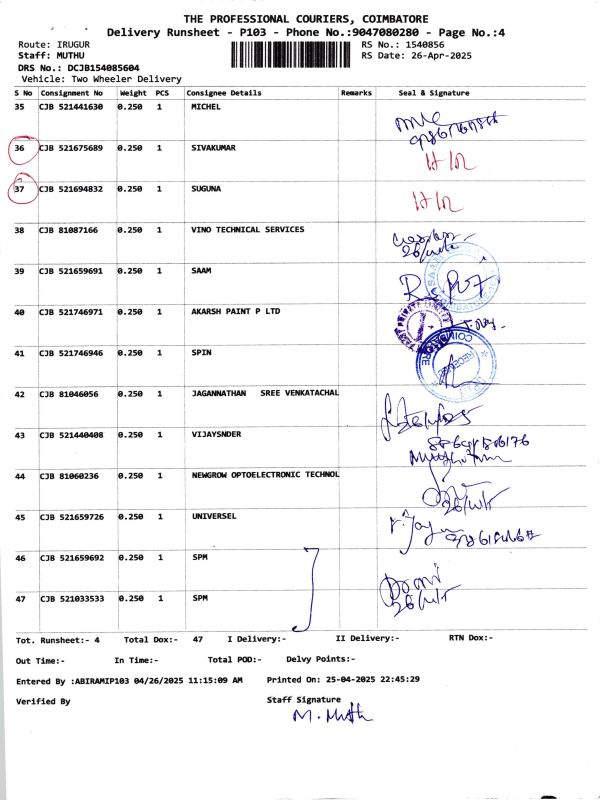 THE PROFESSIONAL COURIERS, COIMBATORE
Delivery Runsheet - P103 - Phone No.:9047080280 - Page No.:4
Route: IRUGUR RS No.: 1540856
Staff: MUTHU RS Date: 26-Apr-2025
DRS No.: DCJB154085604
Vehicle: Two Wheeler Delivery
S No Consignment No Weight PCS Consignee Details Remarks Seal & Signature
35 CJB 521441630 0.250 1 MICHEL
36 CJB 521675689 0.250 1 SIVAKUMAR
37 CJB 521694832 0.250 1 SUGUNA
38 CJB 81087166 0.250 1 VINO TECHNICAL SERVICES
39 CJB 521659691 0.250 1 SAAM
40 CJB 521746971 0.250 1 AKARSH PAINT P LTD
41 CJB 521746946 0.250 1 SPIN
COIMBATORE
RECEIVED
42 CJB 81046056 0.250 1 JAGANNATHAN SREE VENKATACHAL
43 CJB 521440408 0.250 1 VIJAYSNDER
44 CJB 81060236 0.250 1 NEWGROW OPTOELECTRONIC TECHNOL
45 CJB 521659726 0.250 1 UNIVERSEL
46 CJB 521659692 0.250 1 SPM
47 CJB 521033533 0.250 1 SPM
Tot. Runsheet:- 4 Total Dox:- 47 I Delivery:- II Delivery:- RTN Dox:-
Out Time:- In Time:- Total POD:- Delvy Points:-
Entered By :ABIRAMIP103 04/26/2025 11:15:09 AM Printed On: 25-04-2025 22:45:29
Verified By Staff Signature
M. Muth